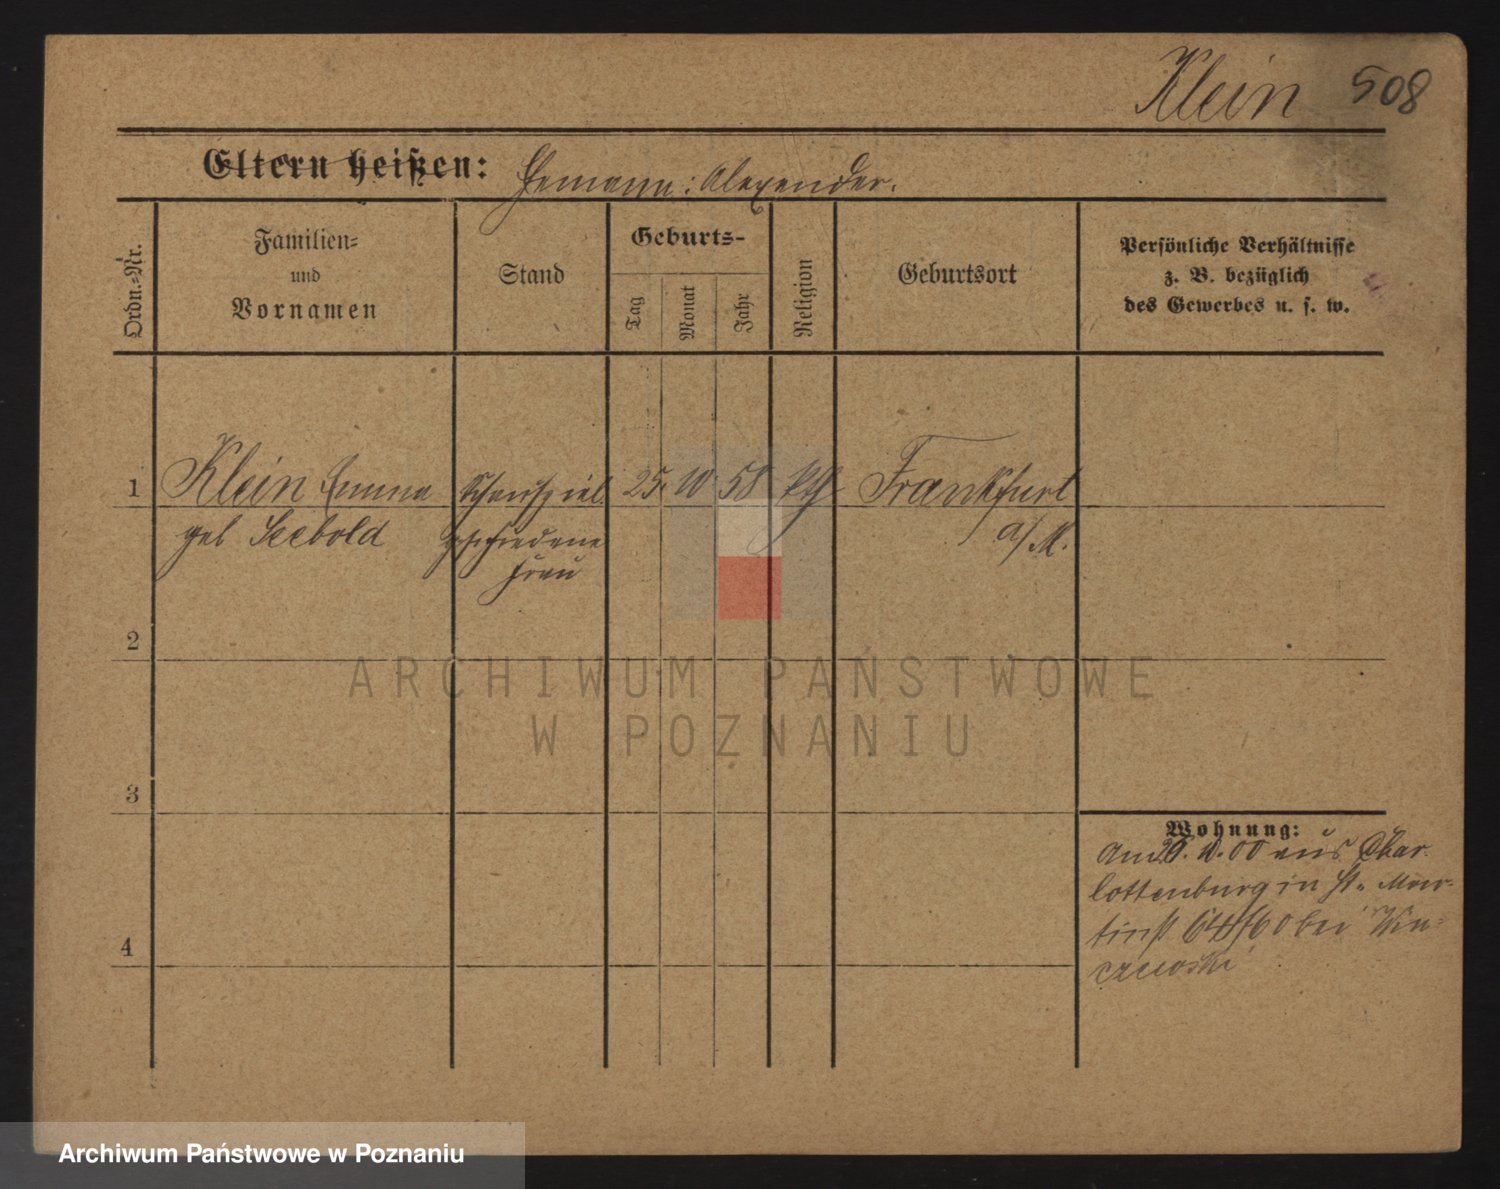 Klein 508
Eltern heißen: Ehemann: Alexander.
Ordn.-Nr.
Familien-
und
Vornamen
Stand
Geburts-
Tag
Monat
Jahr
Religion
Geburtsort
Persönliche Verhältnisse
z. B. bezüglich
des Gewerbes u. s. w.
1 Klein Emma Schauspiel. 25. 10. 58 kth Frankfurt
geb Seebold geschiedene a/M.
Frau
2
3
4
Wohnung:
Am 20. 10. 00 aus Char-
lottenburg in St. Mar-
tinst bei
ARCHIWUM PAŃSTWOWE
W POZNANIU
Archiwum Państwowe w Poznaniu